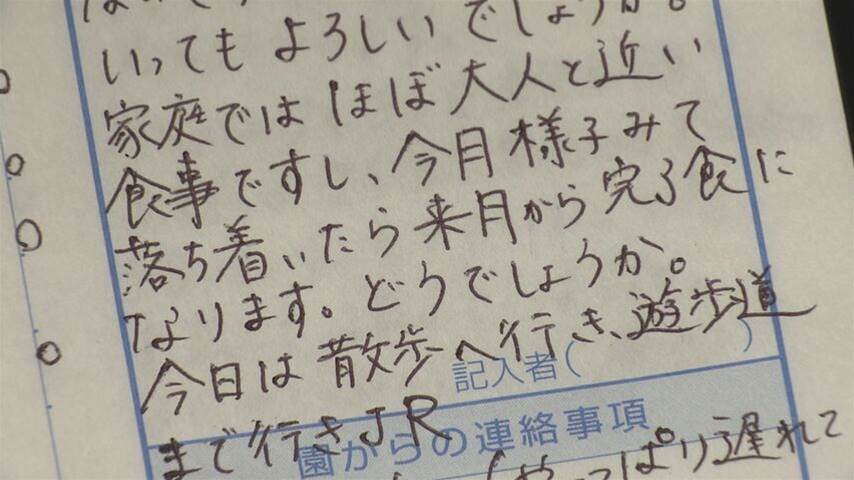 いってもよろしいでしょうか。
家庭ではほぼ大人と近い
食事ですし、今月様子みて
落ち着いたら来月から完了食に
なります。どうでしょうか。
今日は散歩へ行き、遊歩道
記入者( )
まで行きJR
園からの連絡事項
やっぱり遅れて